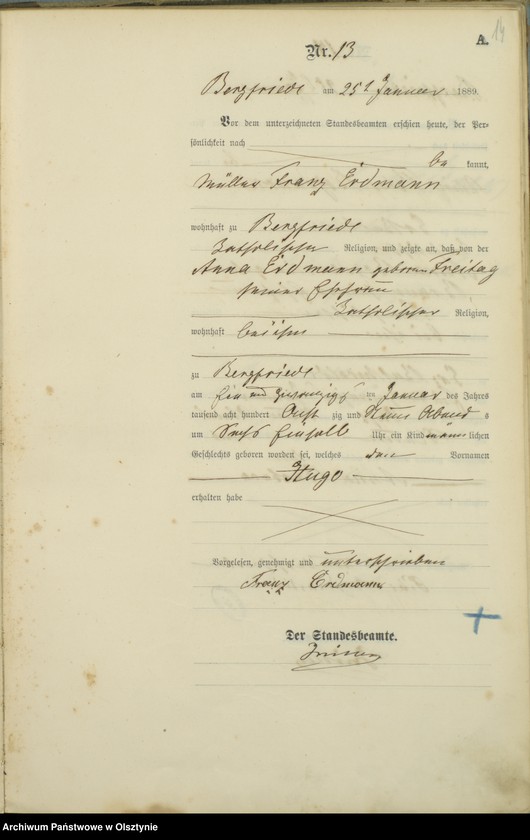 14
A.
Nr. 13
Bergfriede am 25t Januar 1889.
Vor dem unterzeichneten Standesbeamten erschien heute, der Per-
sönlichkeit nach
be kannt,
Müller Franz Erdmann
wohnhaft zu Bergfriede
katholischer Religion, und zeigte an, daß von der
Anna Erdmann geborenen Freitag
seiner Ehefrau
katholischer Religion,
wohnhaft bei ihm
zu Bergfriede
am ein und zwanzigsten Januar des Jahres
tausend acht hundert acht zig und neun Abends
um sechs einhalb Uhr ein Kind männlichen
Geschlechts geboren worden sei, welches den Vornamen
Hugo
erhalten habe
Vorgelesen, genehmigt und unterschrieben
Franz Erdmann
Der Standesbeamte.
Archiwum Państwowe w Olsztynie